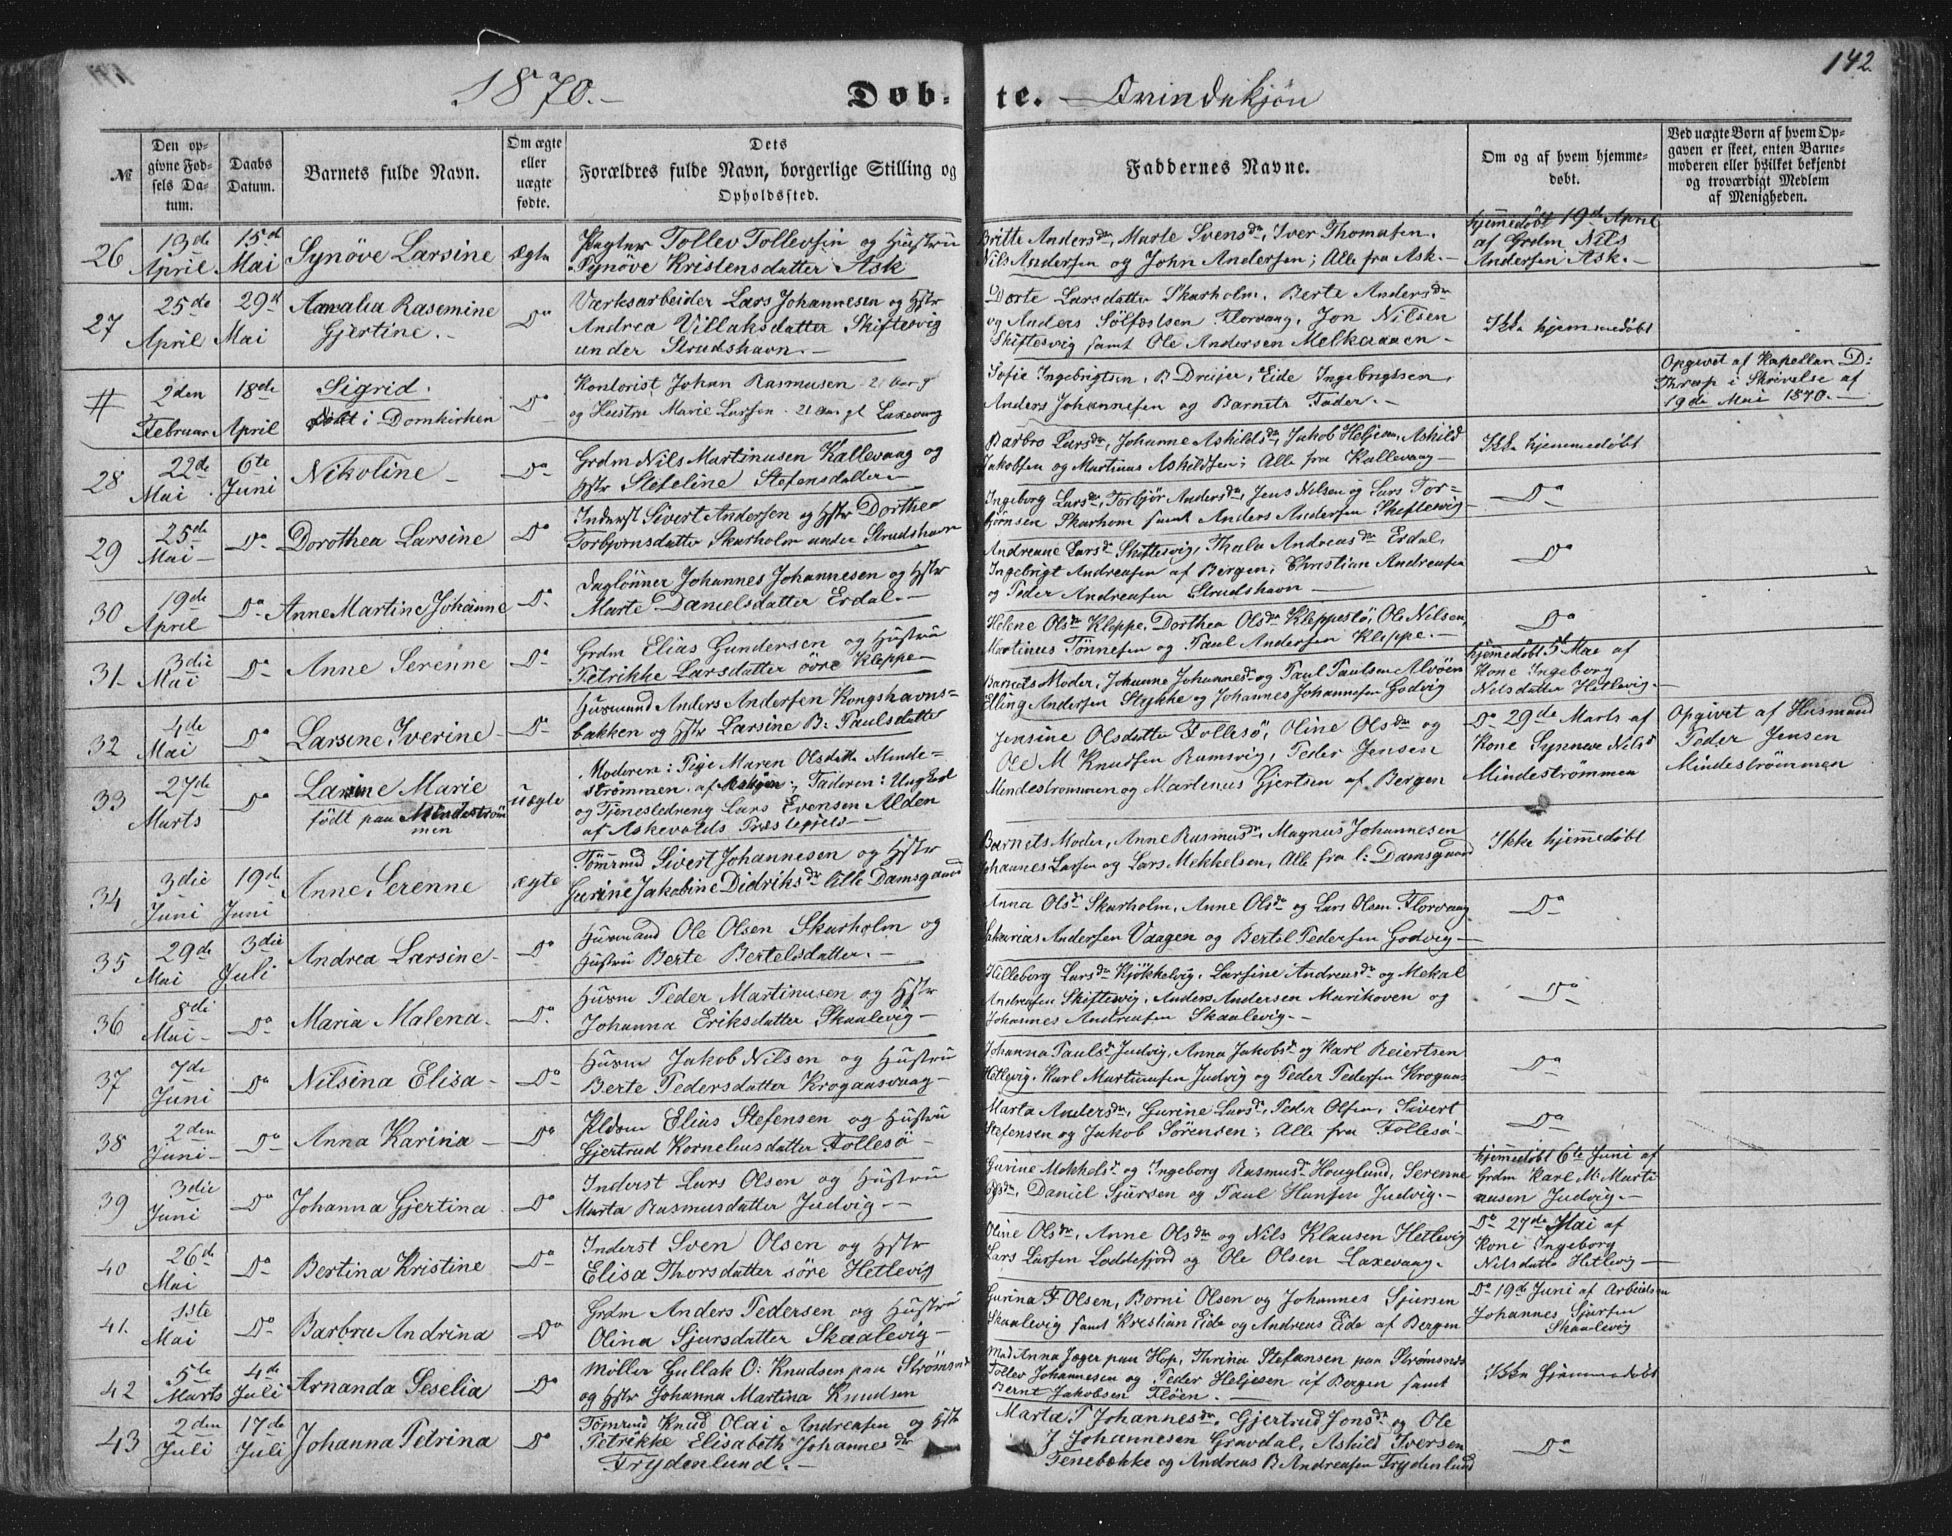 142.
1870.- Döb- te. Qvindekjön
№
Den op-
givne Fød-
sels Da-
tum.
Daabs
Datum.
Barnets fulde Navn.
Om ægte
eller
uægte
fødte.
Dets
Forældres fulde Navn, borgerlige Stilling og
Opholdssted.
Faddernes Navne.
Om og af hvem hjemme-
døbt.
Ved uægte Børn af hvem Op-
gaven er skeet, enten Barne-
moderen eller hvilket bekjendt
og troværdigt Medlem
af Menigheden.
26 13de April 15de Mai Synöve Larsine ægte
Pagter Tollev Tollevsen og Hustru
Synöve Kristensdatter Ask
Britte Andersdr, Marte Svensdr, Iver Thomasen,
Nils Andersen og John Andersen; Alle fra Ask.-
hjemmedöbt 19de April
af Grdm Nils
Andersen Ask.-
27 25de April 29d Mai Amalia Rasemine
Gjertine.- Do
Værksarbeider Lars Johannesen og Hstr
Andrea Villaksdatter Skiftesvig
under Strudshavn.-
Dorte Larsdatter Skarholm, Berte Andersdr
og Anders Sölfestsen Florvaag, Jon Nilsen
Skiftesvig samt Ole Andersen Melkeraaen-
Ikke hjemmedöbt
# 2den Februar 18de April Sigrid.
Döbt i Domkirken Do
Kontorist Johan Rasmusen 21 Aar g
og Hustru Marie Larsen 21 Aar gl Laxevaag
Sofie Ingebrigtsen, B Dreijer, Eide Ingebrigtsen,
Anders Johannesen og Barnets Fader.-
Opgivet af Kapellan D:
Thrap i Skrivelse af
19de Mai 1870.-
28 22de Mai 6te Juni Nikoline- Do
Grdm Nils Martinusen Kallevaag og
Hstr Stefeline Stefensdatter-
Barbro Larsdr, Johanne Askildsdr, Jakob Heljesen, Askild
Jakobsen og Martinus Askildsen; Alle fra Kallevaag-
Ikke hjemmedöbt
29 25de Mai- Do Dorothea Larsine Do
Inderst Sivert Andersen og Hstr Dorthea
Torbjornsdatter Skarholm under Strudshavn
Ingeborg Larsdr, Torbjör Andersdr, Jens Nilsen og Lars Tor=
bjornsen Skarhom samt Anders Andersen Skiftesvig-
Do
30 19de April Do Anne Martine Johanne Do
Daglönner Johannes Johannesen og Hstr
Marte Danielsdatter Erdal.-
Andreane Larsd Skiftesvig, Thala Andreasdr Erdal,
Ingebrigt Andreasen af Bergen, Christian Andreasen
og Peder Andreasen Strudshavn-
Do
31- 3die Mai Do Anne Serenne Do
Grdm Elias Gundersen og Hustru
Petrikke Larsdatter övre Kleppe-
Helene Olsdr Kleppe, Dorthea Olsdr Kleppestö, Ole Nilsen,
Martinus Tönnesen og Paul Andersen Kleppe.-
Do
32 4de Mai Do Larsine Iverine- Do
Husmand Anders Andersen Kongshavns=
bakken og Hstr Larsine B: Paulsdatter
Barnets Moder, Johanne Johannesd og Paul Paulsen Alvöen
Elling Andersen Stykke og Johannes Johannesen Godvig
hjemmedöbt 5 Mai af
Kone Ingeborg
Nilsdatter Hetlevig.-
33 27de Marts Do Larsine Marie
födt paa Mindeströmmen uægte
Moderen: Pige Maren Olsdattr Minde=
strömmen af Asköen; Faderen: Ungkarl
og Tjenestedreng Lars Evensen Alden
af Askevolds Præstegjeld-
Jensine Olsdatter Follesö, Oline Olsdr og
Ole M Knudsen Ramsvig, Peder Jensen
Mindestrommen og Martenus Gjertsen af Bergen
Do 29de Marts af
Kone Synneve Nilsd
Mindeströmmen
Opgivet af Husmand
Peder Jensen
Mindeströmmen
34 3die Juni 19d Juni Anne Serenne ægte
Tömmd Sivert Johannesen og Hstr
Gurine Jakobine Didriksdr lille Damsgaard
Barnets Moder, Anne Rasmusdr, Magnus Johannesen
Johannes Larsen og Lars Mekkelsen, Alle fra l: Damsgaard
Ikke hjemmedöbt
35 29de Mai 3die Juli Andrea Larsine- Do
Husmand Ole Olsen Skarholm og
Hustru Berte Bertelsdatter.-
Anna Olsdr Skarholm, Anne Olsdr og Lars Olsen Florvaag
Sakarias Andersen Vaagen og Bertel Pedersen Godvig-
Do
36 8di Mai- Do Maria Malena- Do
Husm Peder Martinusen og Hstr
Johanna Eriksdatter Skaalevig-
Hilleborg Larsdr Kjökkelvig, Larsine Andreasdr og Mekal
Andreasen Skiftesvig, Anders Andersen Marikoven og
Johannes Andreasen Skaalevig.-
Do
37 7de Juni Do Nilsina Elisa- Do
Husm Jakob Nilsen og Hustru
Berte Pedersdatter Krogaasvaag-
Johanna Paulsd Judvig, Anna Jakobsd og Karl Reiertsen
Hetlevig, Karl Martinusen Judvig og Peder Pedersen Krogaas-
Do
38 2den Juni- Do Anna Karina- Do
Pldsm Elias Stefensen og Hustru
Gjertrud Korneliusdatter Follesö-
Marta Andersdr, Gurine Larsd, Peder Olsen, Sivert
Stefensen og Jakob Sörensen; Alle fra Follesö-
Do
39 3die Juni Do Johanna Gjertina Do
Inderst Lars Olsen og Hustru
Marta Rasmusdatter Judvig-
Gurine Mekkelsd og Ingeborg Rasmusd Houglund, Serenne
Olsdr, Daniel Sjursen og Paul Hansen Judvig.-
hjemmedöbt 6te Juni af
Grdm Karl M. Marti
nusen Judvig.-
40 26d Mai Do Bertina Kristine Do
Inderst Sven Olsen og Hstr
Elisa Thorsdatter söre Hetlevig
Oline Olsdr, Anne Olsdr og Nils Klausen Hetlevig
Lars Larsen Loddefjord og Ole Olsen Laxevaag.
Do 27de Mai af
Kone Ingeborg
Nilsdattr Hetlevig-
41. 1ste Mai Do Barbra Andrina Do
Grdm Anders Pedersen og Hustru
Olina Sjursdatter Skaalevig-
Gurina F Olsen, Borni Olsen og Johannes Sjursen
Skaalevig samt Kristian Eide og Andreas Eide af Bergen
Do 19de Juni af Arbeidsm
Johannes Sjursen
Skaalevig
42 5te Marts 4de Juli Arnanda Seselia Do
Möller Gullak O: Knudsen paa Strömsnes
og Hstr Johanna Martina Knudsen
Mad Anna Jæger paa Hop, Thrina Stefansen paa Strömsnes
Tollev Johannesen og Peder Heljesen af Bergen samt
Bernt Jakobsen Flöen.-
Ikke hjemmedöbt
43 2den Juli 17de Juli Johanna Petrina Do
Tömmd Knud Olai Andreasen og Hstr
Petrikke Elisabeth Johannesdr
Frydenlund.-
Marta P Johannesdr, Gjertrud Jonsdr og Ole
J Johannesen Gravdal, Askild Iversen
Tenebekke og Andreas B Andreasen Frydenlund
Do